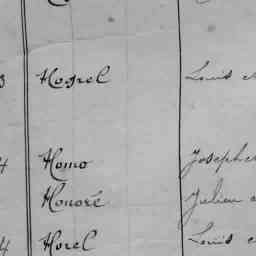 Hosrel Louis
4 Homo Joseph
Honoré Julien
4 Horel Louis